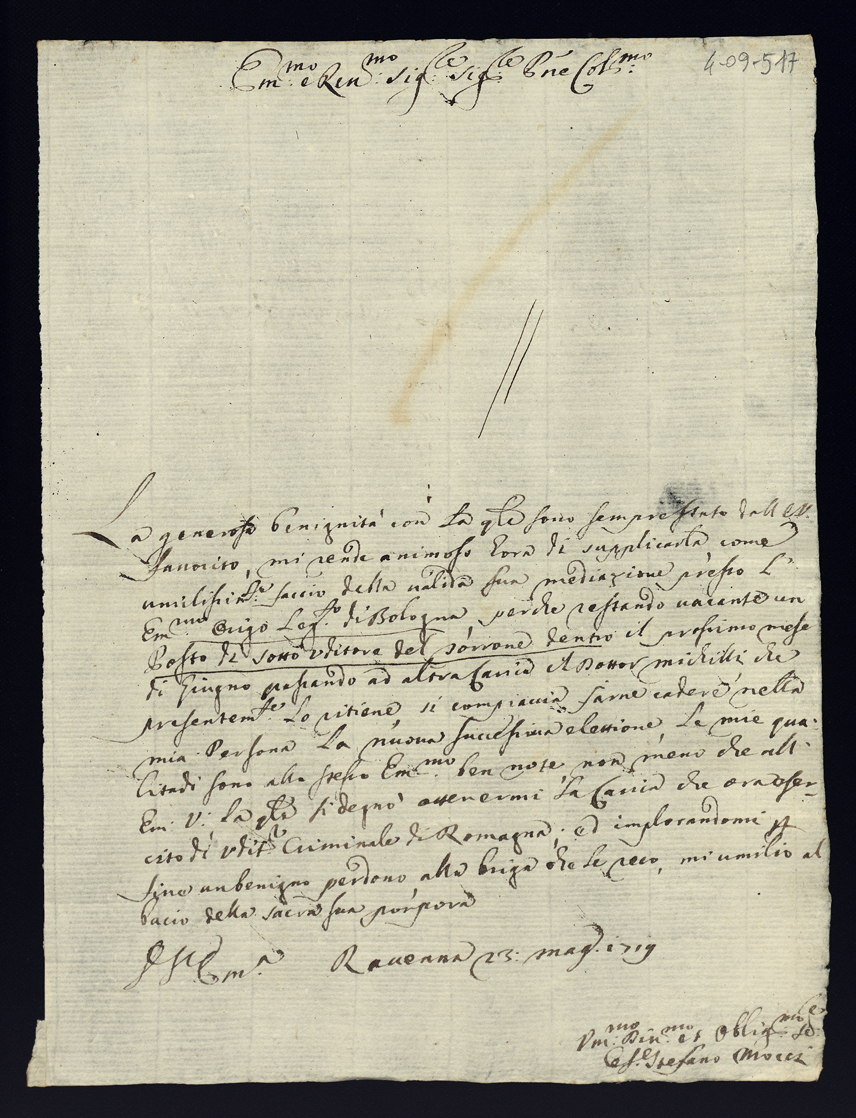 4-09-517
Em.mo e Rev.mo Sig.re Sig.re P.ne Col.mo
La generosa benignità con la qle sono sempre stato dall' E.V.
favorito, mi rende animoso hora di supplicarla come
umilissim.te faccio della valida sua mediazione presso l'
Em.mo Origo Leg.to di Bologna, perche restando vacante un
Posto di sotto Uditore del Torrone dentro il prossimo mese
di Giugno passando ad altra Carica il Dottor Michilli che
presentem.te lo ritiene si compiaccia farne cadere nella
mia Persona la nuova successiva elezzione. Le mie qua-
litadi sono allo stesso Em.mo ben note non meno che all'
Em: V: la qle si degnò ottenermi la Carica che ora eser-
cito di Udit.e Criminale di Romagna; ed implorandomi in
fine un benigno perdono alla briga che le reco, mi umilio al
bacio della sacra sua porpora
Di V. Em.a Ravenna 23: mag.o 1719
Um.mo Div.mo et Oblig.mo Se.re
Stefano Mocci